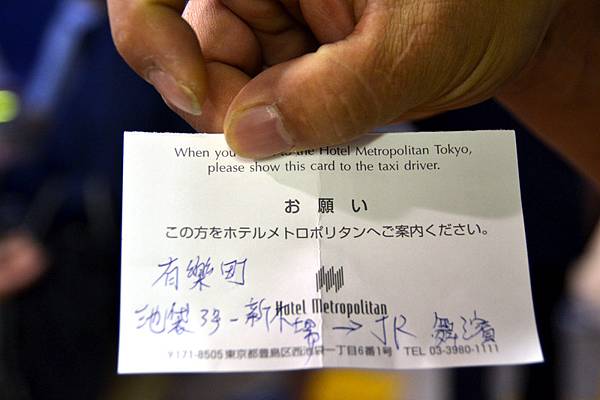 When you to the Hotel Metropolitan Tokyo,
please show this card to the taxi driver.
お願い
この方をホテルメトロポリタンへご案内ください。
有樂町
Hotel Metropolitan
池袋 3号-新木場→JR 舞濱
〒171-8505 東京都豊島区西池袋一丁目6番1号 TEL 03-3980-1111